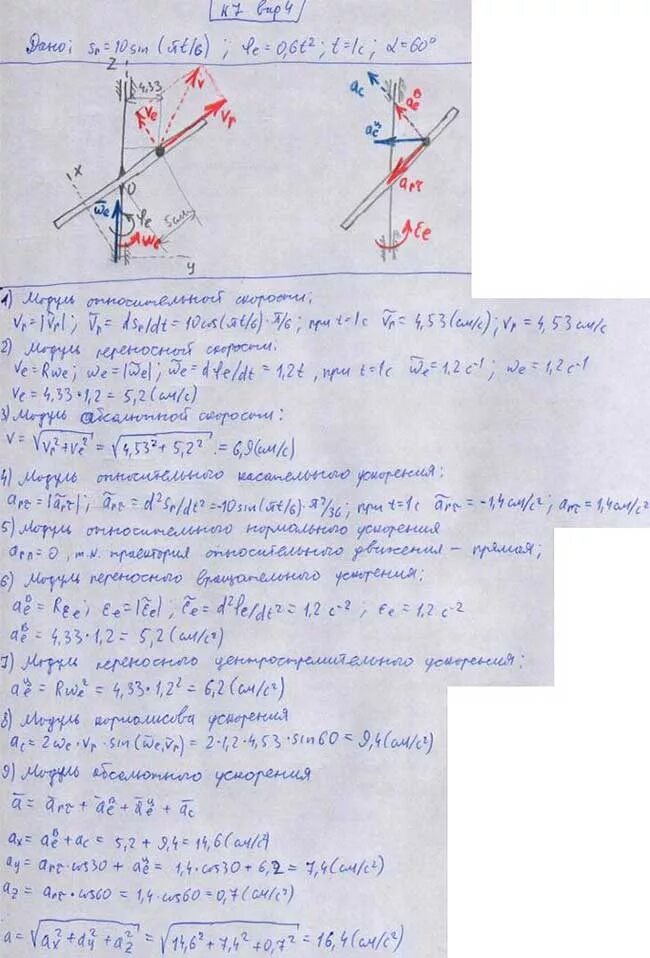 К7 вар 4
Дано: Sr = 10 sin (πt/6) ; φe = 0,6t² ; t = 1c ; α = 60°
z
4,33
v̄
v̄e
v̄r
x
O
ω̄e
φe
ωe
5см
y
ac
aeᴮ
aeᶣ
arτ
εe
1) Модуль относительной скорости:
vr = |v̄r| ; v̄r = dsr/dt = 10cos(πt/6)·π/6 ; при t=1c v̄r = 4,53 (см/с) ; vr = 4,53 см/с
2) Модуль переносной скорости:
ve = Rωe ; ωe = |ω̄e| ; ω̄e = dφe/dt = 1,2t , при t=1c ω̄e = 1,2 c⁻¹ ; ωe = 1,2 c⁻¹
ve = 4,33·1,2 = 5,2 (см/с)
3) Модуль абсолютной скорости:
v = √(vr² + ve²) = √(4,53² + 5,2²) = 6,9 (см/с)
4) Модуль относительного касательного ускорения:
arτ = |ārτ| ; ārτ = d²sr/dt² = -10sin(πt/6)·π²/36 ; при t=1c ārτ = -1,4 см/с² ; arτ = 1,4 см/с²
5) Модуль относительного нормального ускорения
arn = 0 , т.к. траектория относительного движения – прямая ;
6) Модуль переносного вращательного ускорения:
aeᴮ = Rεe ; εe = |ε̄e| ; ε̄e = d²φe/dt² = 1,2 c⁻² ; εe = 1,2 c⁻²
aeᴮ = 4,33·1,2 = 5,2 (см/с²)
7) Модуль переносного центростремительного ускорения:
aeᶣ = Rωe² = 4,33·1,2² = 6,2 (см/с²)
8) Модуль кориолисова ускорения
ac = 2ωe·vr·sin(ω̄e,v̄r) = 2·1,2·4,53·sin60 = 9,4 (см/с²)
9) Модуль абсолютного ускорения
ā = ārτ + āeᴮ + āeᶣ + āc
ax = aeᴮ + ac = 5,2 + 9,4 = 14,6 (см/с²)
ay = arτ·cos30 + aeᶣ = 1,4·cos30 + 6,2 = 7,4 (см/с²)
az = arτ·cos60 = 1,4·cos60 = 0,7 (см/с²)
a = √(ax² + ay² + az²) = √(14,6² + 7,4² + 0,7²) = 16,4 (см/с²)